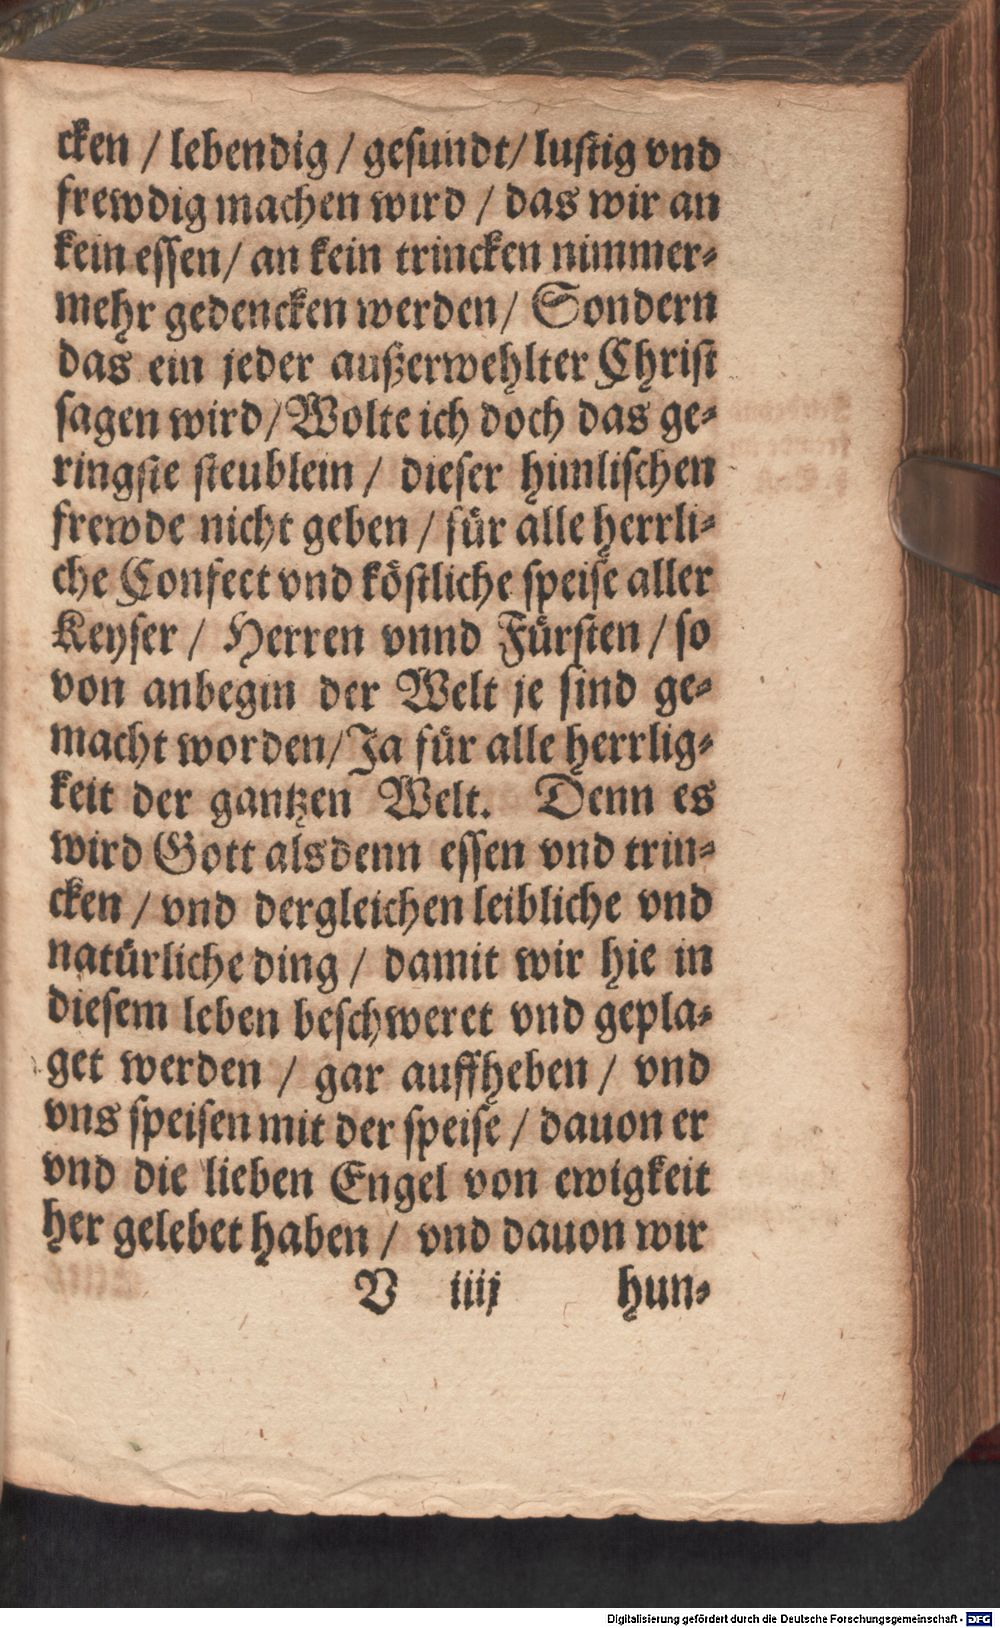 cken / lebendig / gesundt / lustig vnd
frewdig machen wird / das wir an
kein essen / an kein trincken nimmer-
mehr gedencken werden / Sondern
das ein jeder außerwehlter Christ
sagen wird / Wolte ich doch das ge-
ringste steublein / dieser himlischen
frewde nicht geben / für alle herrli-
che Confect vnd köstliche speise aller
Keyser / Herren vnnd Fürsten / so
von anbegin der Welt je sind ge-
macht worden / Ja für alle herrlig-
keit der gantzen Welt. Denn es
wird Gott alsdenn essen vnd trin-
cken / vnd dergleichen leibliche vnd
natürliche ding / damit wir hie in
diesem leben beschweret vnd gepla-
get werden / gar auffheben / vnd
vns speisen mit der speise / dauon er
vnd die lieben Engel von ewigkeit
her gelebet haben / vnd dauon wir
V iiij hun-
Digitalisierung gefördert durch die Deutsche Forschungsgemeinschaft - DFG